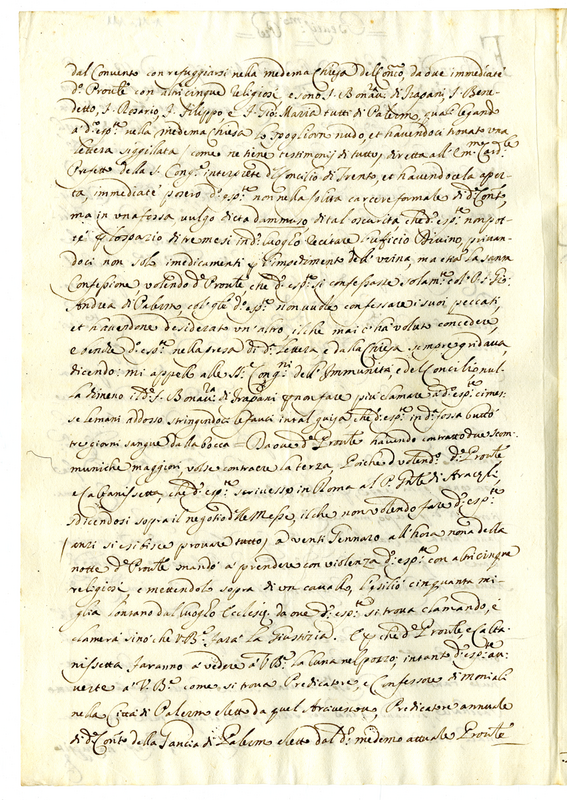 dal Convento con refuggiarsi nella medema Chiesa dell'onco, da dve immediate
d.º Prou.le con altri cinque Religiosi e sono f. Bonau.a di Trapani, f. Bene-
detto, f. Rosario, f. Filippo e f. Gio: Maria tutti di Palermo, quali legando
a d.º esp.te nella medema chiesa lo spogliorn nudo, et havendoci trouato una
lettera sigillata (come ne tiene testimonij di tutto) diretta all'Em.mo Card.le
Prefetto della S. Cong.ne interprete di Concilio di Trento, et havendocela aper-
ta, immediate posero d.º esp.te non nella solita carcere formale di d.º Con.to,
ma in una fossa vulgo dicta dammuso di tal oscurità che d.º esp.te non pot-
te p lo spazio di tre mesi in d.º luogho recitare l'ufficio Divino, privan-
doci non solo i medicamenti p l'impedimento dell'urina, ma etia la santa
Confessione volendo d.º Prou.le che d.º esp.te si confessasse solam.te col P. f. Gio:
Andrea di Palermo, col q.le d.º esp.te non vuole confessare i suoi peccati,
et havendone desiderato un'altro, il che mai c'ha voluto concedere,
e perche d.º esp.te nella presa di d.ª lettera e dalla Chiesa sempre gridava,
dicendo: mi appello alle S. Cong.ni dell'Immunità e del Concilio nul-
la dimeno il d.º f. Bonau.ra di Trapani p non fare più clamare a d.º esp.te ci mes-
se le mani addosso stringendoci le fauci in tal guisa che d.º esp.te in d.ª fossa buttò
tre giorni sangue dalla bocca = Da ove d.º Prou.le havendo contratto due scom-
muniche maggiori volse contraere la terza, Poiche volend.º d.º Prou.le
e Caltanissetta, che d.º esp.te scrivesse in Roma al P. G.nle di Araceli,
disdicendosi sopra il negotio d.lle Messe, il che non volendo fare d.º esp.te
anzi si esibisce provare tutto, a venti Gennaro all'hora nona della
notte d.º Prou.le mandò a prendere con violenza d.º esp.te con altri cinque
religiosi e mettendolo sopra di un cavallo, l'esiliò cinquanta mi-
glia lontano dal luogho Eccles.co da ove d.º esp.te si trova clamando, e
clamerà sino che V. B.ne farà la Giustizia. E p che d.º Prou.le e Calta-
nissetta faranno a vedere a V. B.ne la luna nel pozzo, intanto d.º esp.te au-
verte a V. B.ne come si trova Predicatore, e Confessore di moniali
nella Città di Palermo eletto da quel Arcivescovo, Predicatore annuale
di d.º Con.to della Gancia di Palermo eletto dal d.º medemo attuale Prou.le